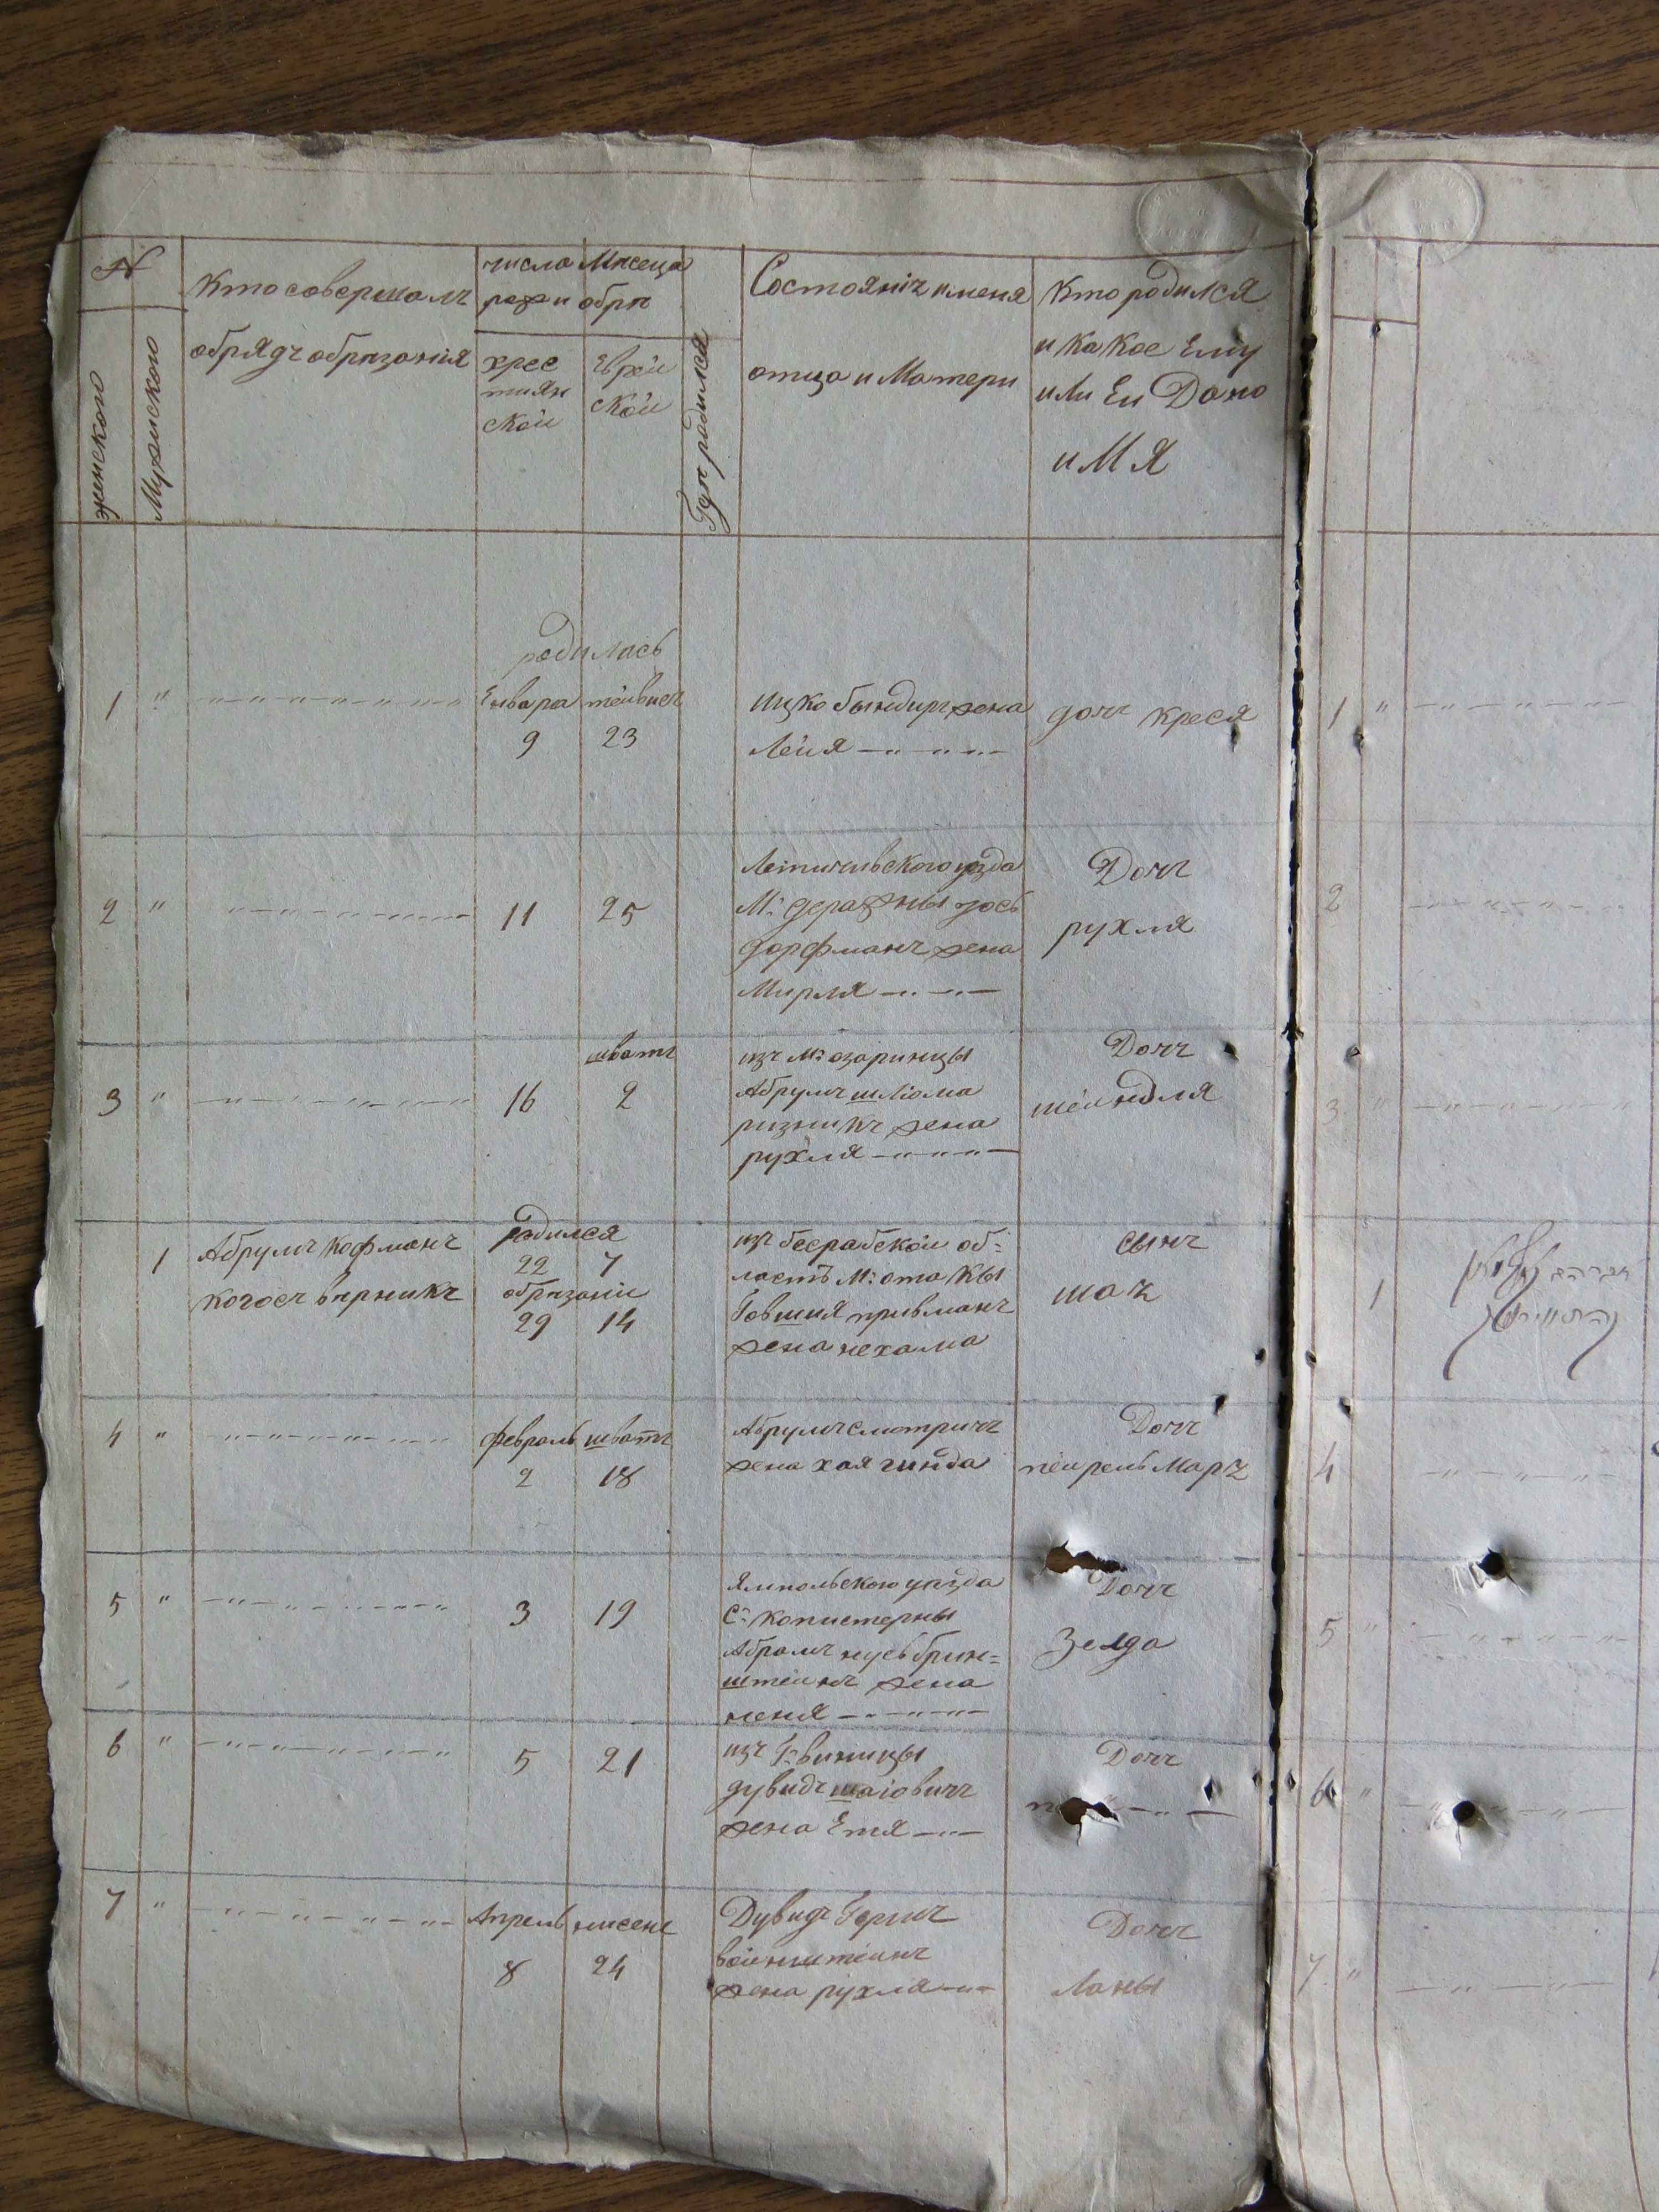 №
женского
Мужского
Кто совершалъ
обрядъ обрѣзанія
числа Мѣсеца
рож и обрѣ
хрес
тиян
ской
Еврей
ской
Гдѣ родился
Состояніѣ имена
отца и Матери
Кто родился
и какое Ему
или Еи Дано
имя
родилась
1 " Енвара тейвисъ
9 23
ицко
жена
Лейя
дочъ креся
2 " 11 25
Летичивского уезда
М: деражны
дорфманъ жена
Мирля
Дочъ
рухля
3 " 16
шватъ
2
изъ М: озаринцы
Абрумъ шліома
ризникъ жена
рухля
Дочъ
шейндля
1
Абрумъ Кофманъ
когосъ вѣрникъ
родился
22 7
обрѣзаніи
29 14
изъ бесрабской об=
ласть М: отакы
жена нехама
сынъ
4 " февраль шватъ
2 18
Абрумъ смотричъ
жена хая гинда
Дочъ
пейрель
5 " 3 19
Ямпольского уѣзда
С: копистерны
Абрамъ нусь брин=
штейнъ жена
неня
Дочъ
Зелда
6 " 5 21
изъ Г: виницы
дувидъ
жена Етя
Дочъ
7 " Апрель нисенъ
8 24
Дувидъ Гершъ
войнштейнъ
жена рухля
Дочъ
Ланы
1 "
2
3 "
1
4
5 "
6 "
7 "